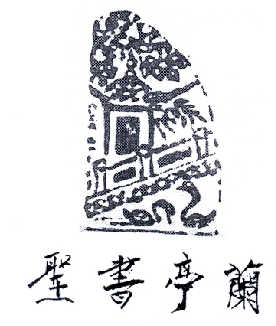 蘭亭書聖